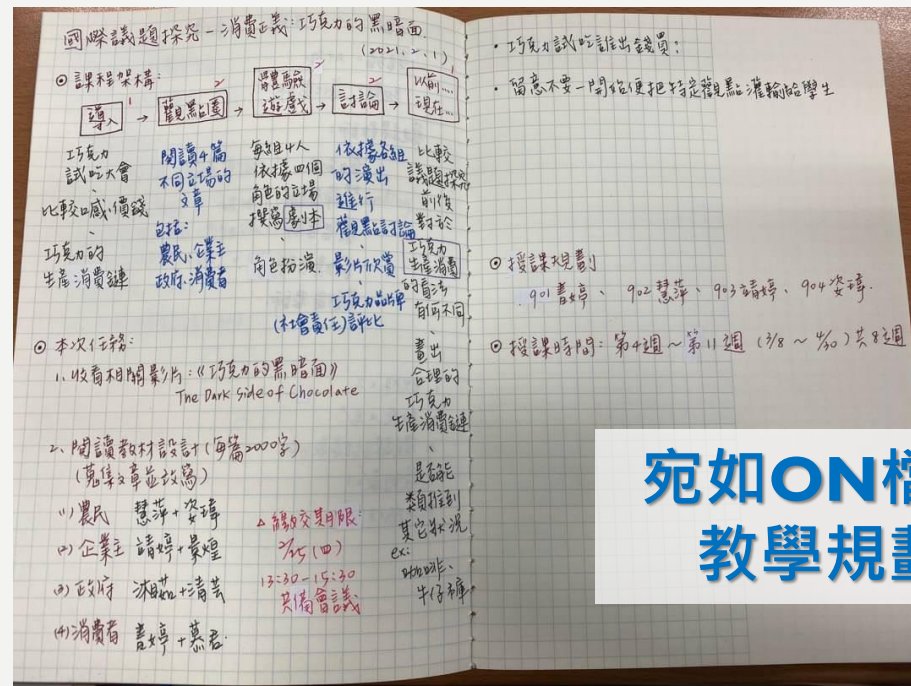 國際議題探究-消費正義:巧克力的黑暗面.
(2021.2.1)
◎ 課程架構:
1 2 2
導入 → 觀點閱讀 → 體驗遊戲 → 討論 → 以前....現在....
巧克力
試吃大會
、
比較口感、價錢
、
巧克力的
生產消費鏈
閱讀4篇
不同立場的
文章
包括:
農民、企業主
政府、消費者
每組4人
依據四個
角色的立場
撰寫劇本
、
角色扮演.
依據各組
的演出
進行
觀點討論
、
影片欣賞
、
巧克力品牌
(社會責任)評比
比較
議題探究
前後
對於
巧克力
生產消費
的看法
有何不同
、
畫出
合理的
巧克力
生產消費鏈
、
是否能
類推到
其它狀況
ex:
咖啡、
牛仔褲
◎ 本次任務:
1. 收看相關影片:《巧克力的黑暗面》
The Dark Side of Chocolate
2. 閱讀教材設計(每篇2000字)
(蒐集文章並改寫)
(1) 農民 慧萍+姿瑋
(2) 企業主 靖婷+景煌
(3) 政府 +清芸
(4) 消費者 書婷+慕君.
△ 繳交期限:
2/25 (四)
13:30-15:30
共備會議
· 巧克力試吃誰出錢買?
· 留意不要一開始便把特定觀點灌輸給學生
◎ 授課規劃
. 901書婷、 902慧萍、 903靖婷、 904姿瑋.
◎ 授課時間: 第4週~第11週 (3/8 ~ 4/30) 共8週
宛如ON檔
教學規劃